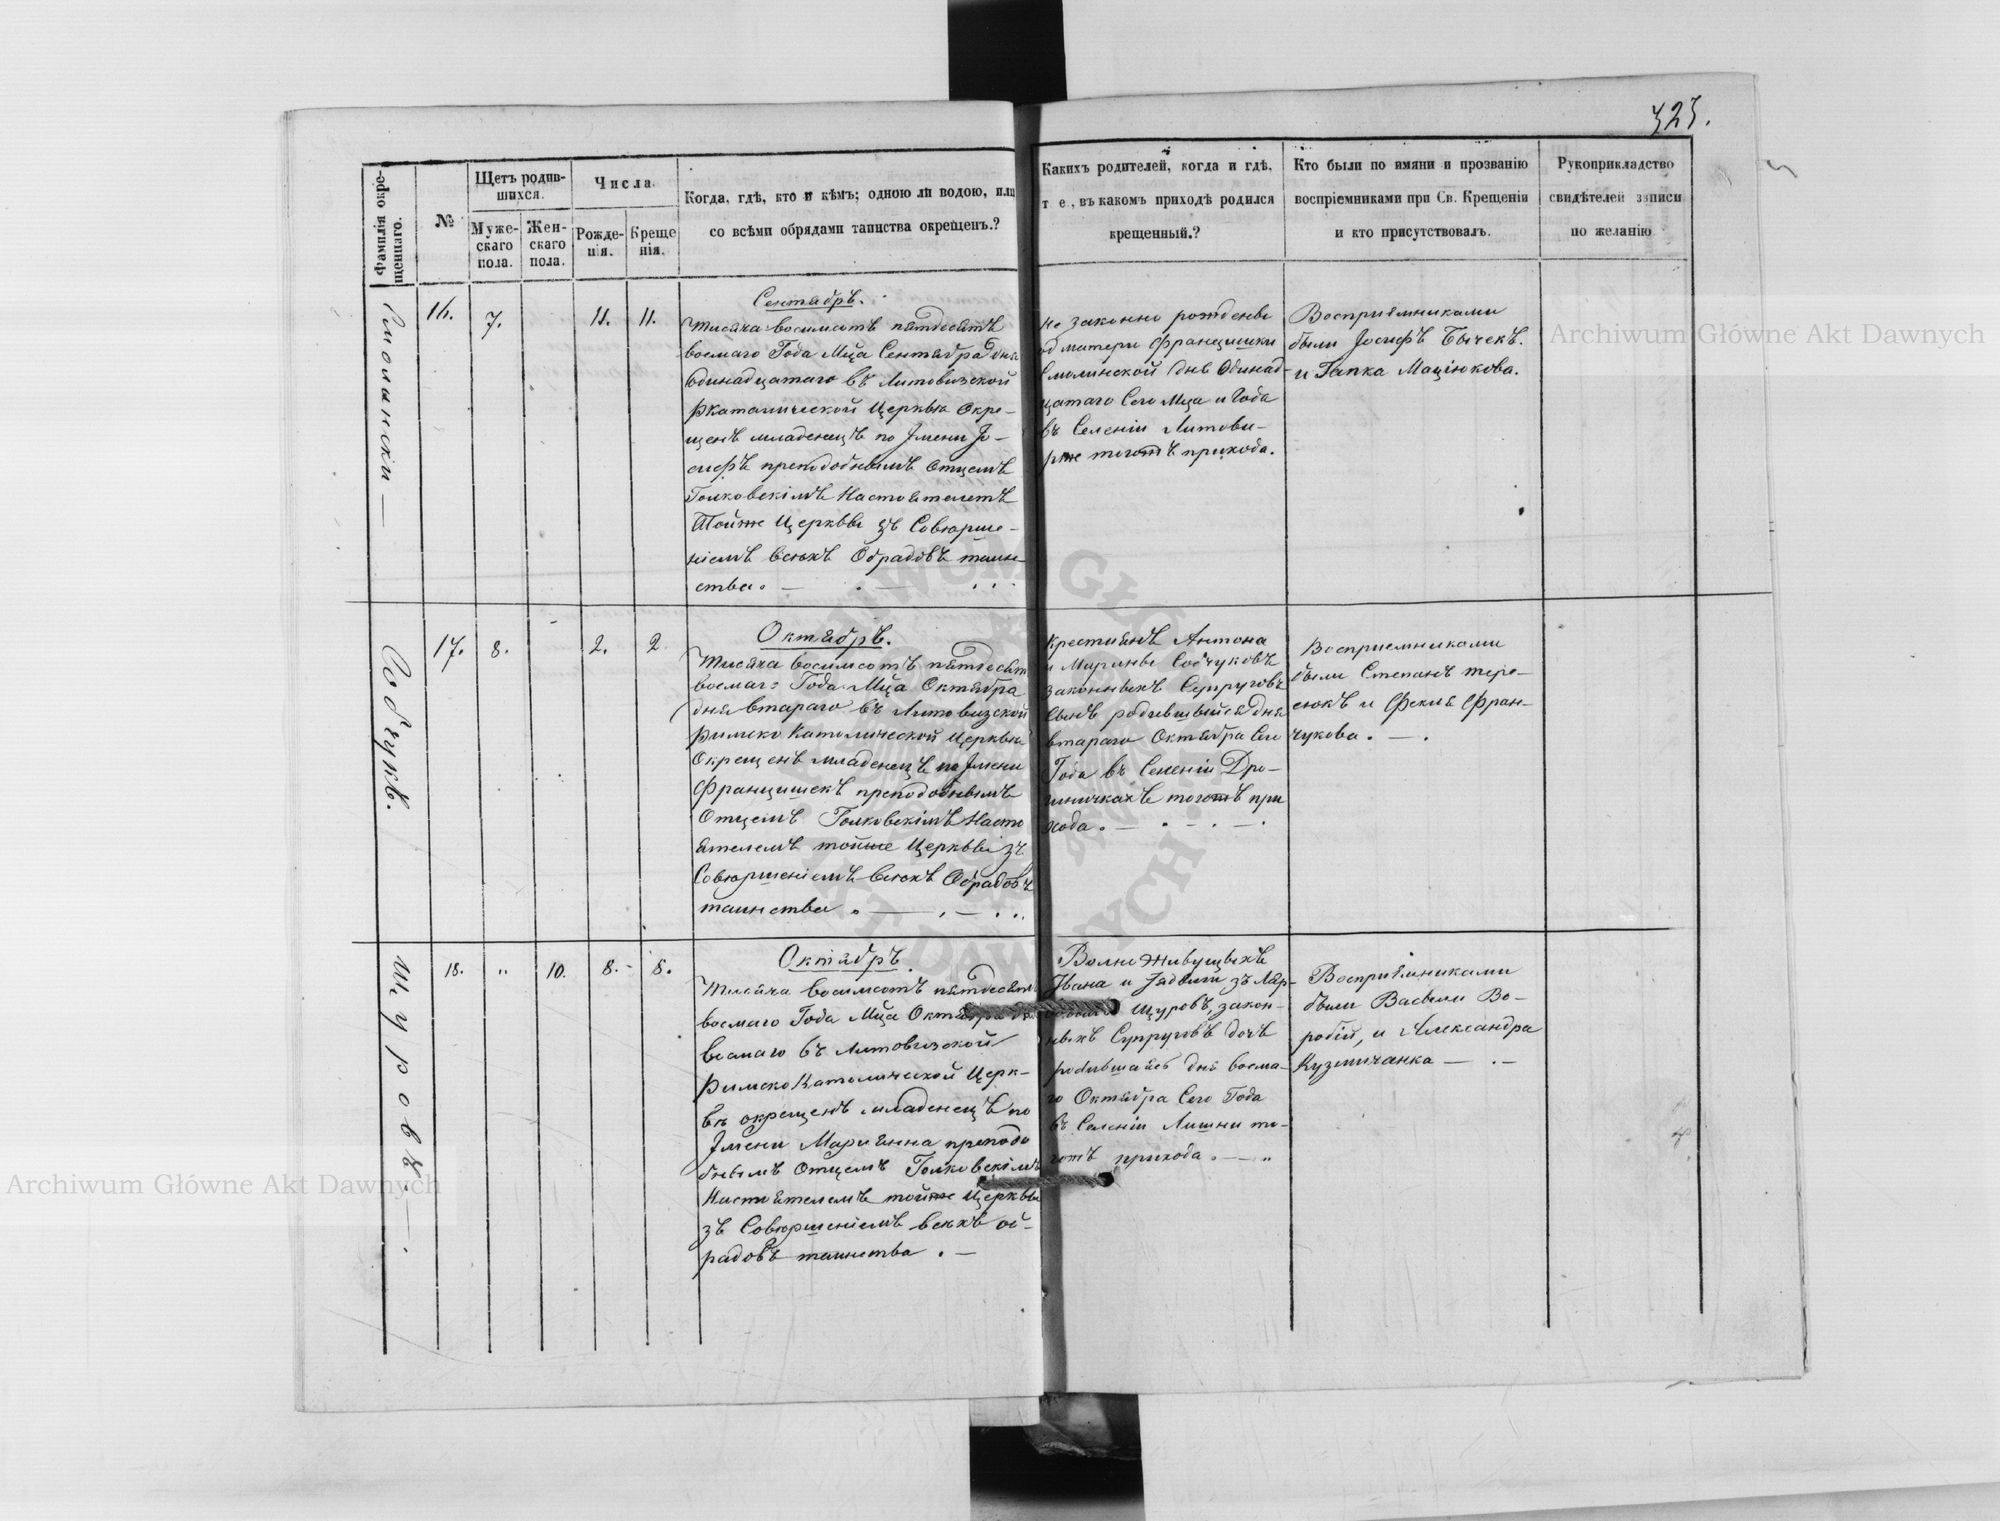 323.
Фамилія окре-
щеннаго.
№
Щетъ родив-
шихся.
Муже-
скаго
пола.
Жен-
скаго
пола.
Числа.
Рожде-
нія.
Креще
нія.
Когда, гдѣ, кто и кѣмъ; одною ли водою, или
со всѣми обрядами таинства окрещенъ.?
Каких родителей, когда и гдѣ,
т е., въ какомъ приходѣ родился
крещенный.?
Кто были по имяни и прозванію
воспріемниками при Св. Крещеніи
и кто присутствовалъ.
Рукоприкладство
свидѣтелей записи
по желанію
Смолински —
16.
7.
11.
11.
Сентябръ.
Тисяча восимсотъ пятдесятъ
восмаго Года Мца Сентября дня
Одинадцатаго въ Литовизской
Ркаталической Церквѣ Окре-
щенъ младенецъ по Імени Іо-
сифъ преподобнымъ Отцемъ
Голковскімъ Настоятелемъ
Тойже Церквы зъ Совюрше-
ніемъ всѣхъ Обрадовъ таин-
ства. —
Не законно рожденны
од матери Францишки
Смолинской дня Одинад-
цатаго Сего Мца и Года
въ Селеніи Литови-
рже тогожъ прихода.
Восприямниками
были Іосифъ Бычекъ.
и Гапка Маціюкова.
Собчукъ.
17.
8.
2.
2
Октябръ.
Тисяча восимсотъ пятдесят
восмаго Года Мца Октября
дня втараго въ Литовизской
Римско Католической Церквы
Окрещенъ младенецъ по Імени
Францишекъ преподобнымъ
Отцемъ Голковскімъ Насто
ятелемъ тойже Церквы зъ
Совюршеніемъ всѣхъ Обрадовъ
таинства . —
Крестиянъ Антона
и Марины Собчуковъ
законныхъ Супруговъ
Сынъ родившыйся дня
втараго Октября Сего
Года въ Селеніи Дро-
ничкахъ тогожъ при
хода. —
Восприемниками
были Степанъ тере-
сюкъ и Фекла Фран-
чукова. —
Щуровъ —.
18.
"
10.
8. -
8.
Октябръ.
Тисяча восимсотъ пятдесят
восмаго Года Мца Октября дня
восмаго въ Литовизской
Римско Католической Церк-
вѣ окрещенъ младенецъ по
Імени Мариянна преподо
бнымъ Отцемъ Голковскімъ
Настоятелемъ тойже Церквы
зъ Совюршеніемъ всѣхъ об-
радовъ таинства . —
Волно живущыхъ
Ивана и Ядвиги зъ
Щуровъ, закон-
ныхъ Супруговъ дочъ
родившаясь дня восма-
го Октября Сего Года
въ Селеніи Лишни то-
гожъ прихода. —
Восприямниками
были Васыли Во-
робій, и Александра
Кузмичанка — . —
Archiwum Główne Akt Dawnych
Archiwum Główne Akt Dawnych